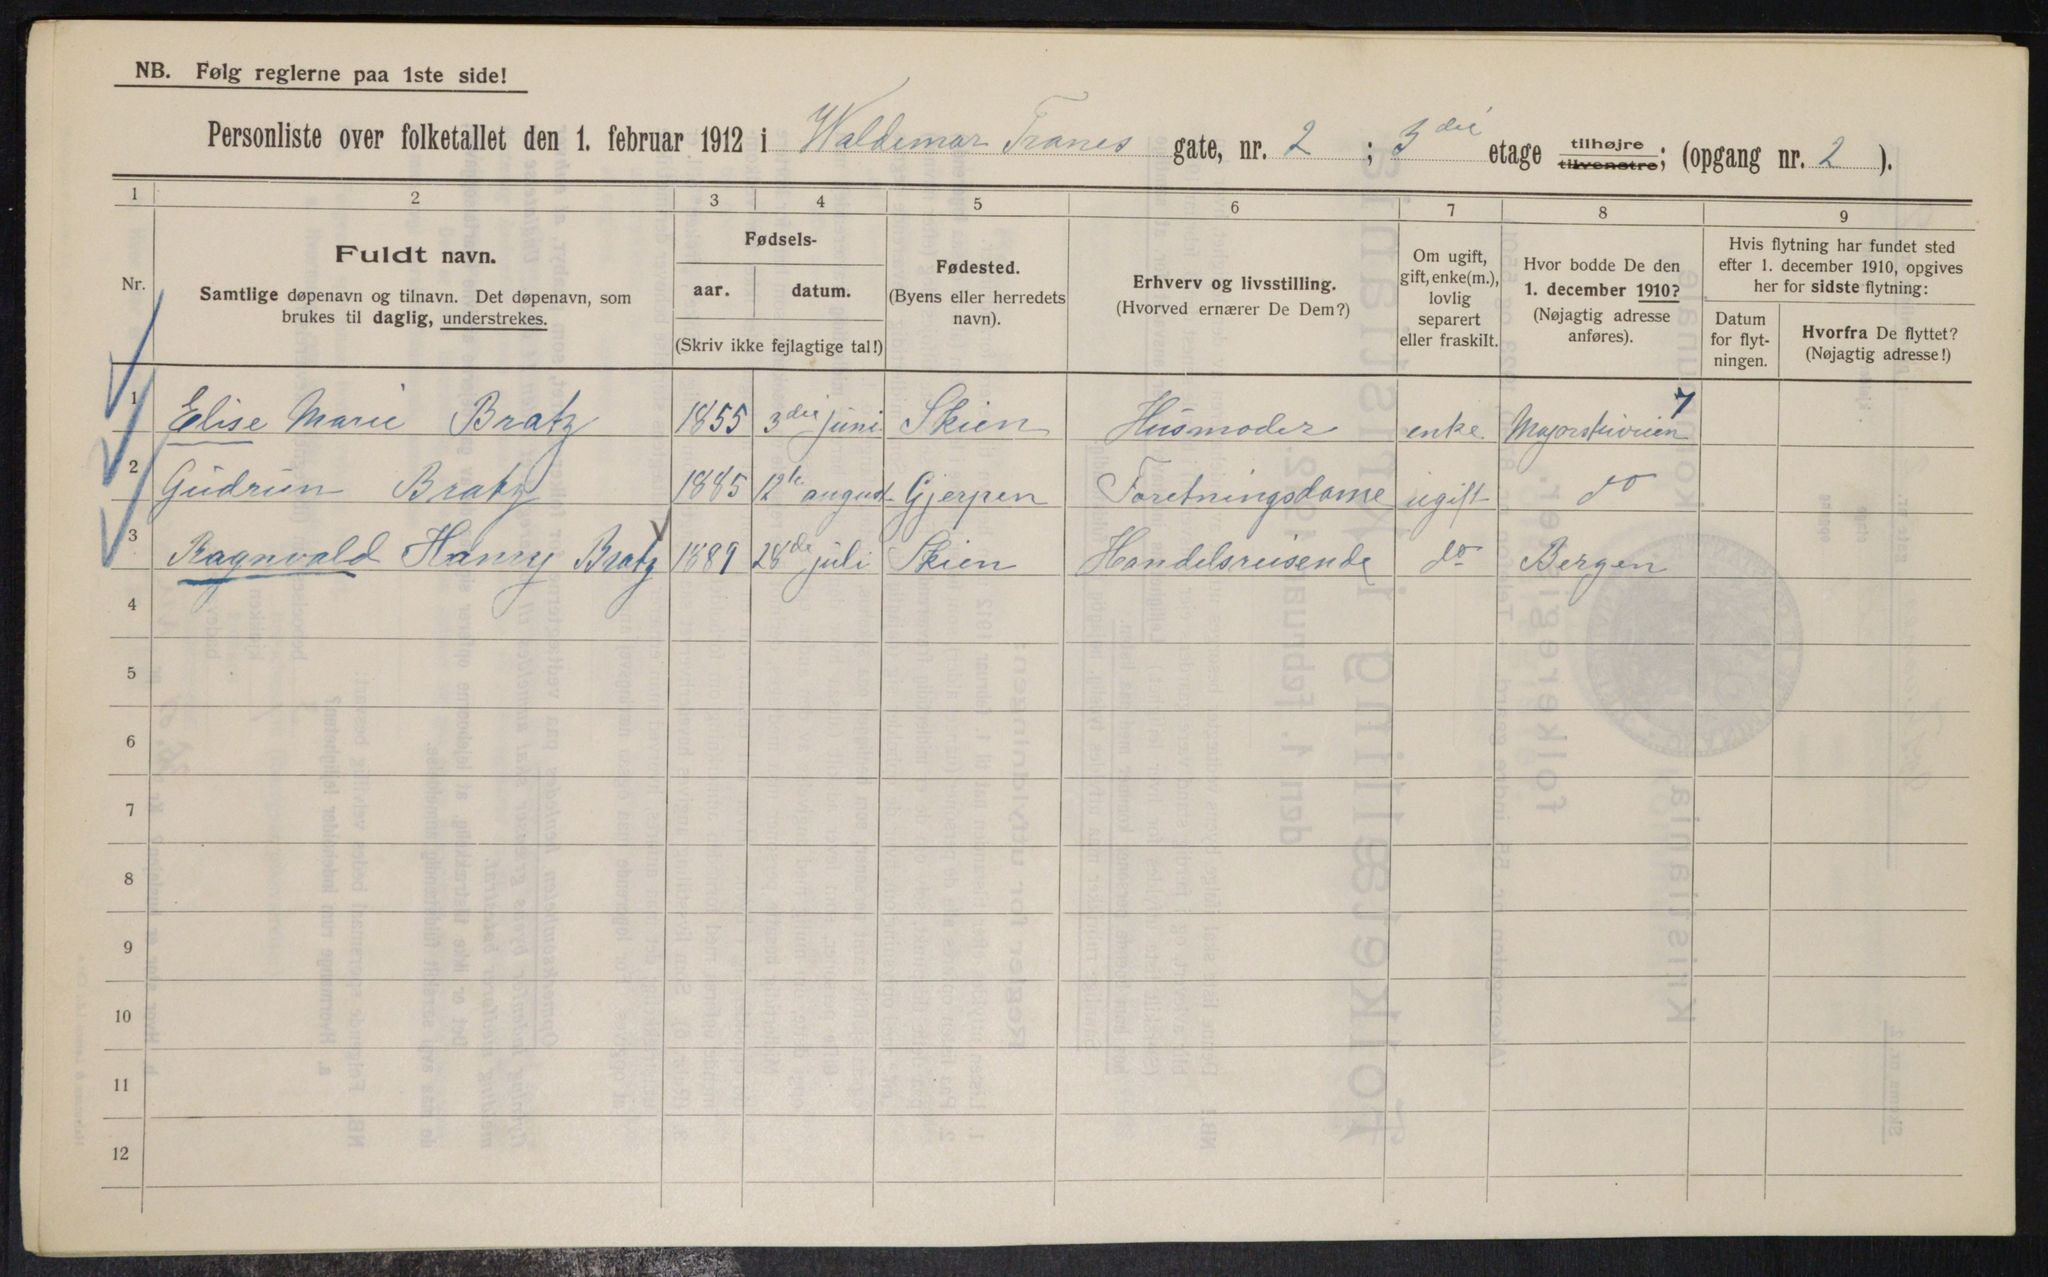 NB. Følg reglerne paa 1ste side!
Personliste over folketallet den 1. februar 1912 i Waldemar Tranes gate, nr. 2 ; 3die etage tilhøjre tilvenstre; (opgang nr. 2 ).
1 2 3 4 5 6 7 8 9
Nr.
Fuldt navn.
Samtlige døpenavn og tilnavn. Det døpenavn, som
brukes til daglig, understrekes.
Fødsels-
aar. datum.
(Skriv ikke fejlagtige tal!)
Fødested.
(Byens eller herredets
navn).
Erhverv og livsstilling.
(Hvorved ernærer De Dem?)
Om ugift,
gift, enke(m.),
lovlig
separert
eller fraskilt.
Hvor bodde De den
1. december 1910?
(Nøjagtig adresse
anføres).
Hvis flytning har fundet sted
efter 1. december 1910, opgives
her for sidste flytning:
Datum
for flyt-
ningen.
Hvorfra De flyttet?
(Nøjagtig adresse!)
1 Elise Marie Bratz 1855 3die juni Skien Husmoder enke Majorstuveien 7
2 Gudrun Bratz 1885 12te august Gjerpen Foretningsdame ugift do
3 Ragnvald Hanry Bratz 1889 28de juli Skien Handelsreisende do Bergen
4
5
6
7
8
9
10
11
12